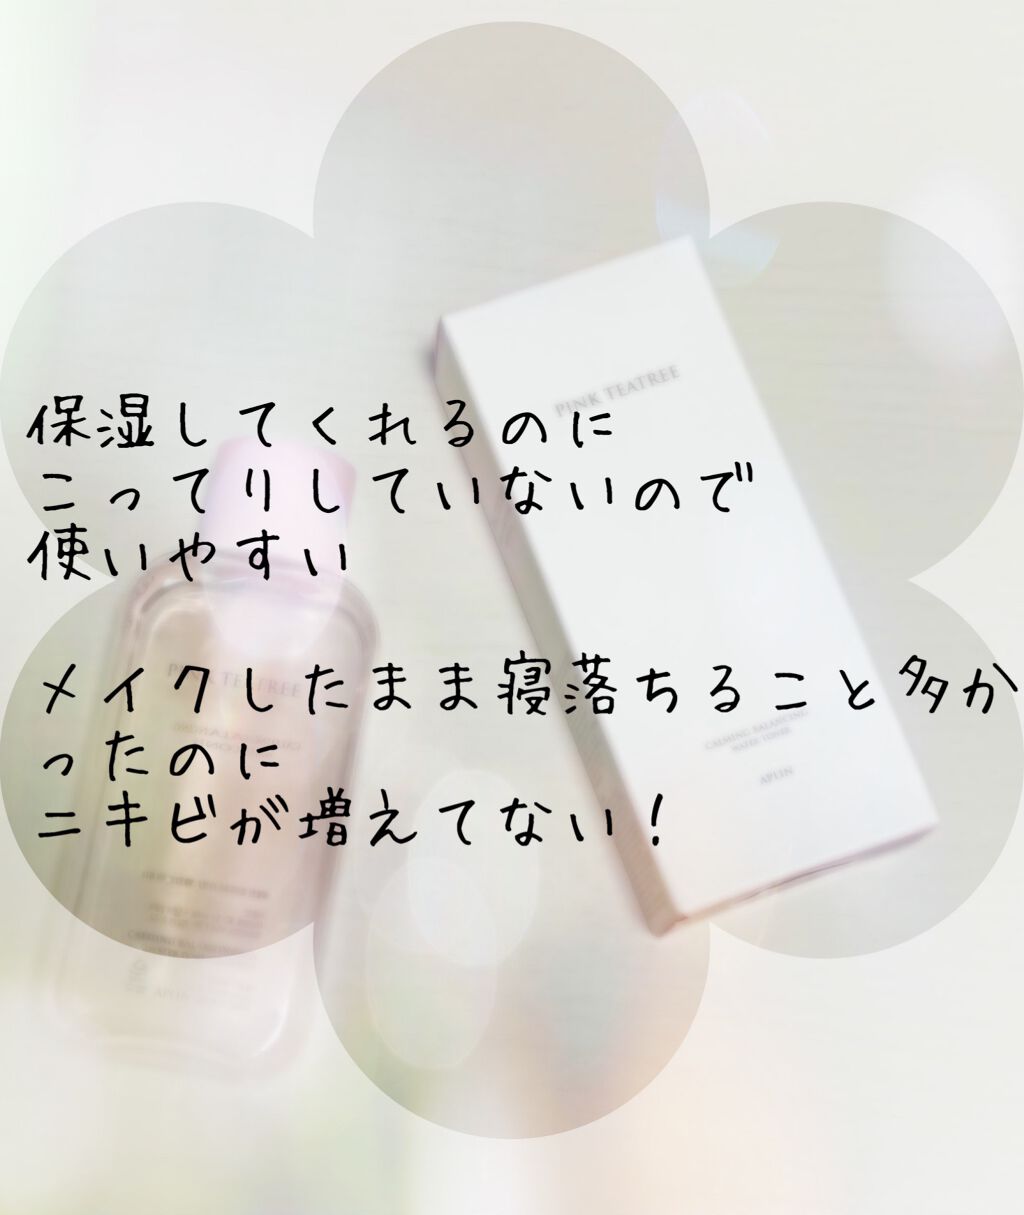 PINK TEATREE
保湿してくれるのに
こってりしていないので
使いやすい
メイクしたまま寝落ちること多か
ったのに
ニキビが増えてない!
PINK TEATREE
CALMING BALANCING
WATER TONER
APLIN
CALMING BALANCING
APLIN